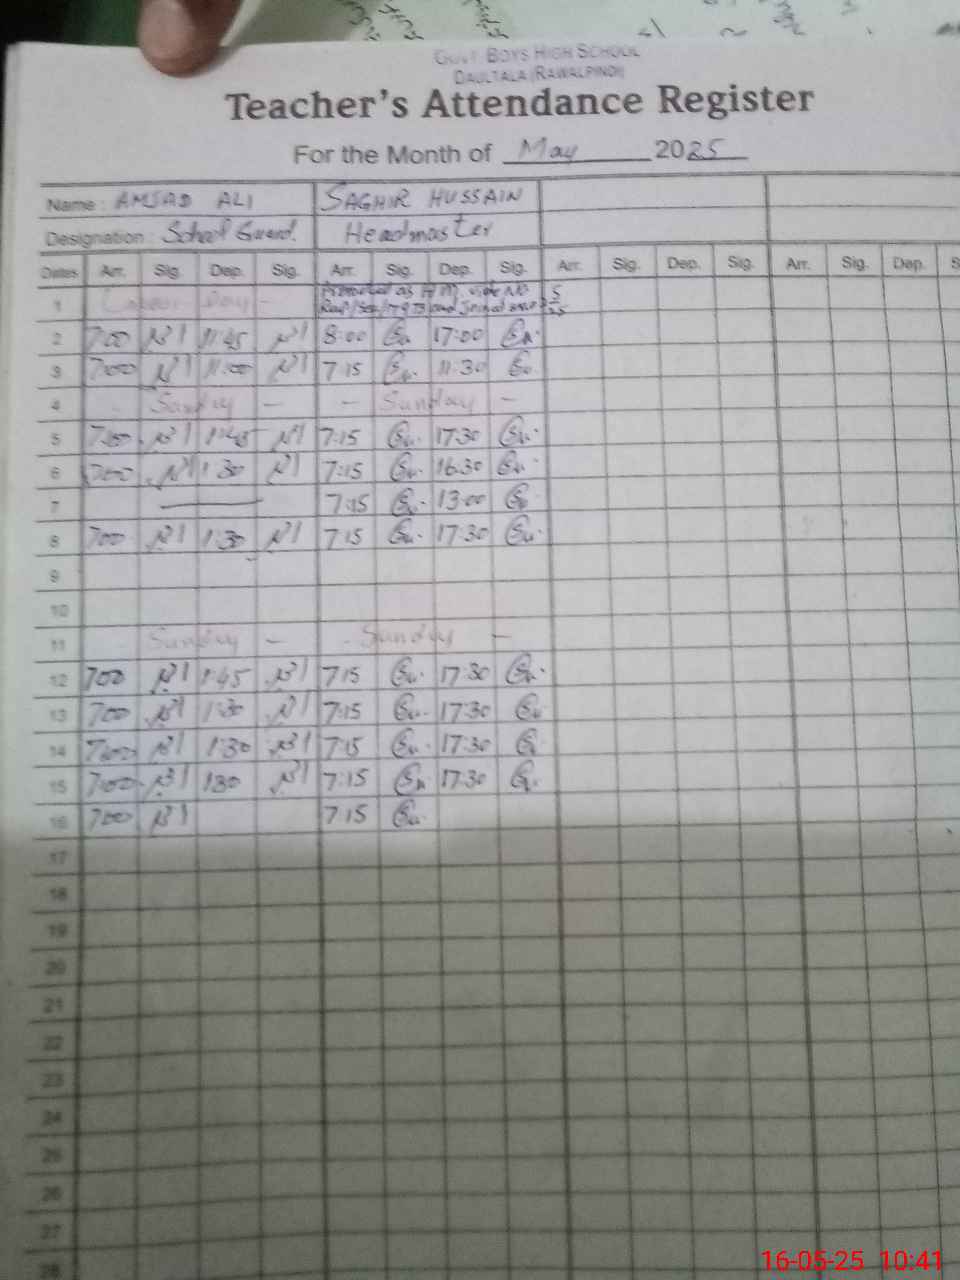 GOVT. BOYS HIGH SCHOOL
DAULTALA (RAWALPINDI)
Teacher's Attendance Register
For the Month of May 2025
Name : AMJAD ALI SAGHIR HUSSAIN
Designation : School Guard. Headmaster
Dates Arr. Sig. Dep. Sig. Arr. Sig. Dep. Sig. Arr. Sig. Dep. Sig. Arr. Sig. Dep. S
1 Labour Day - Promoted as H M vide No
and
2 700 11:45 8:00 17:00
3 700 11:00 7:15 11:30
4 - Sunday - - Sunday -
5 700 1:45 7:15 17:30
6 700 1:30 7:15 16:30
7 — 7:15 13:00
8 700 1:30 7:15 17:30
9
10
11 - Sunday - - Sunday -
12 700 1:45 7:15 17:30
13 700 1:30 7:15 17:30
14 700 1:30 7:15 17:30
15 700 130 7:15 17:30
16 700 7:15
17
18
19
20
21
22
23
24
25
26
27
28
16-05-25 10:41